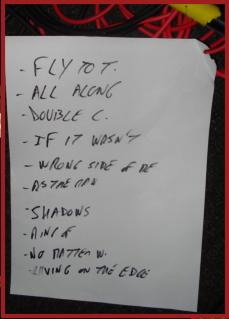 - FLY TO T.
- ALL ALONG
- DOUBLE C.
- IF IT WASN'T
- WRONG SIDE OF ME
- AS THE
- SHADOWS
- OF
- NO MATTER W.
- LIVING ON THE EDGE